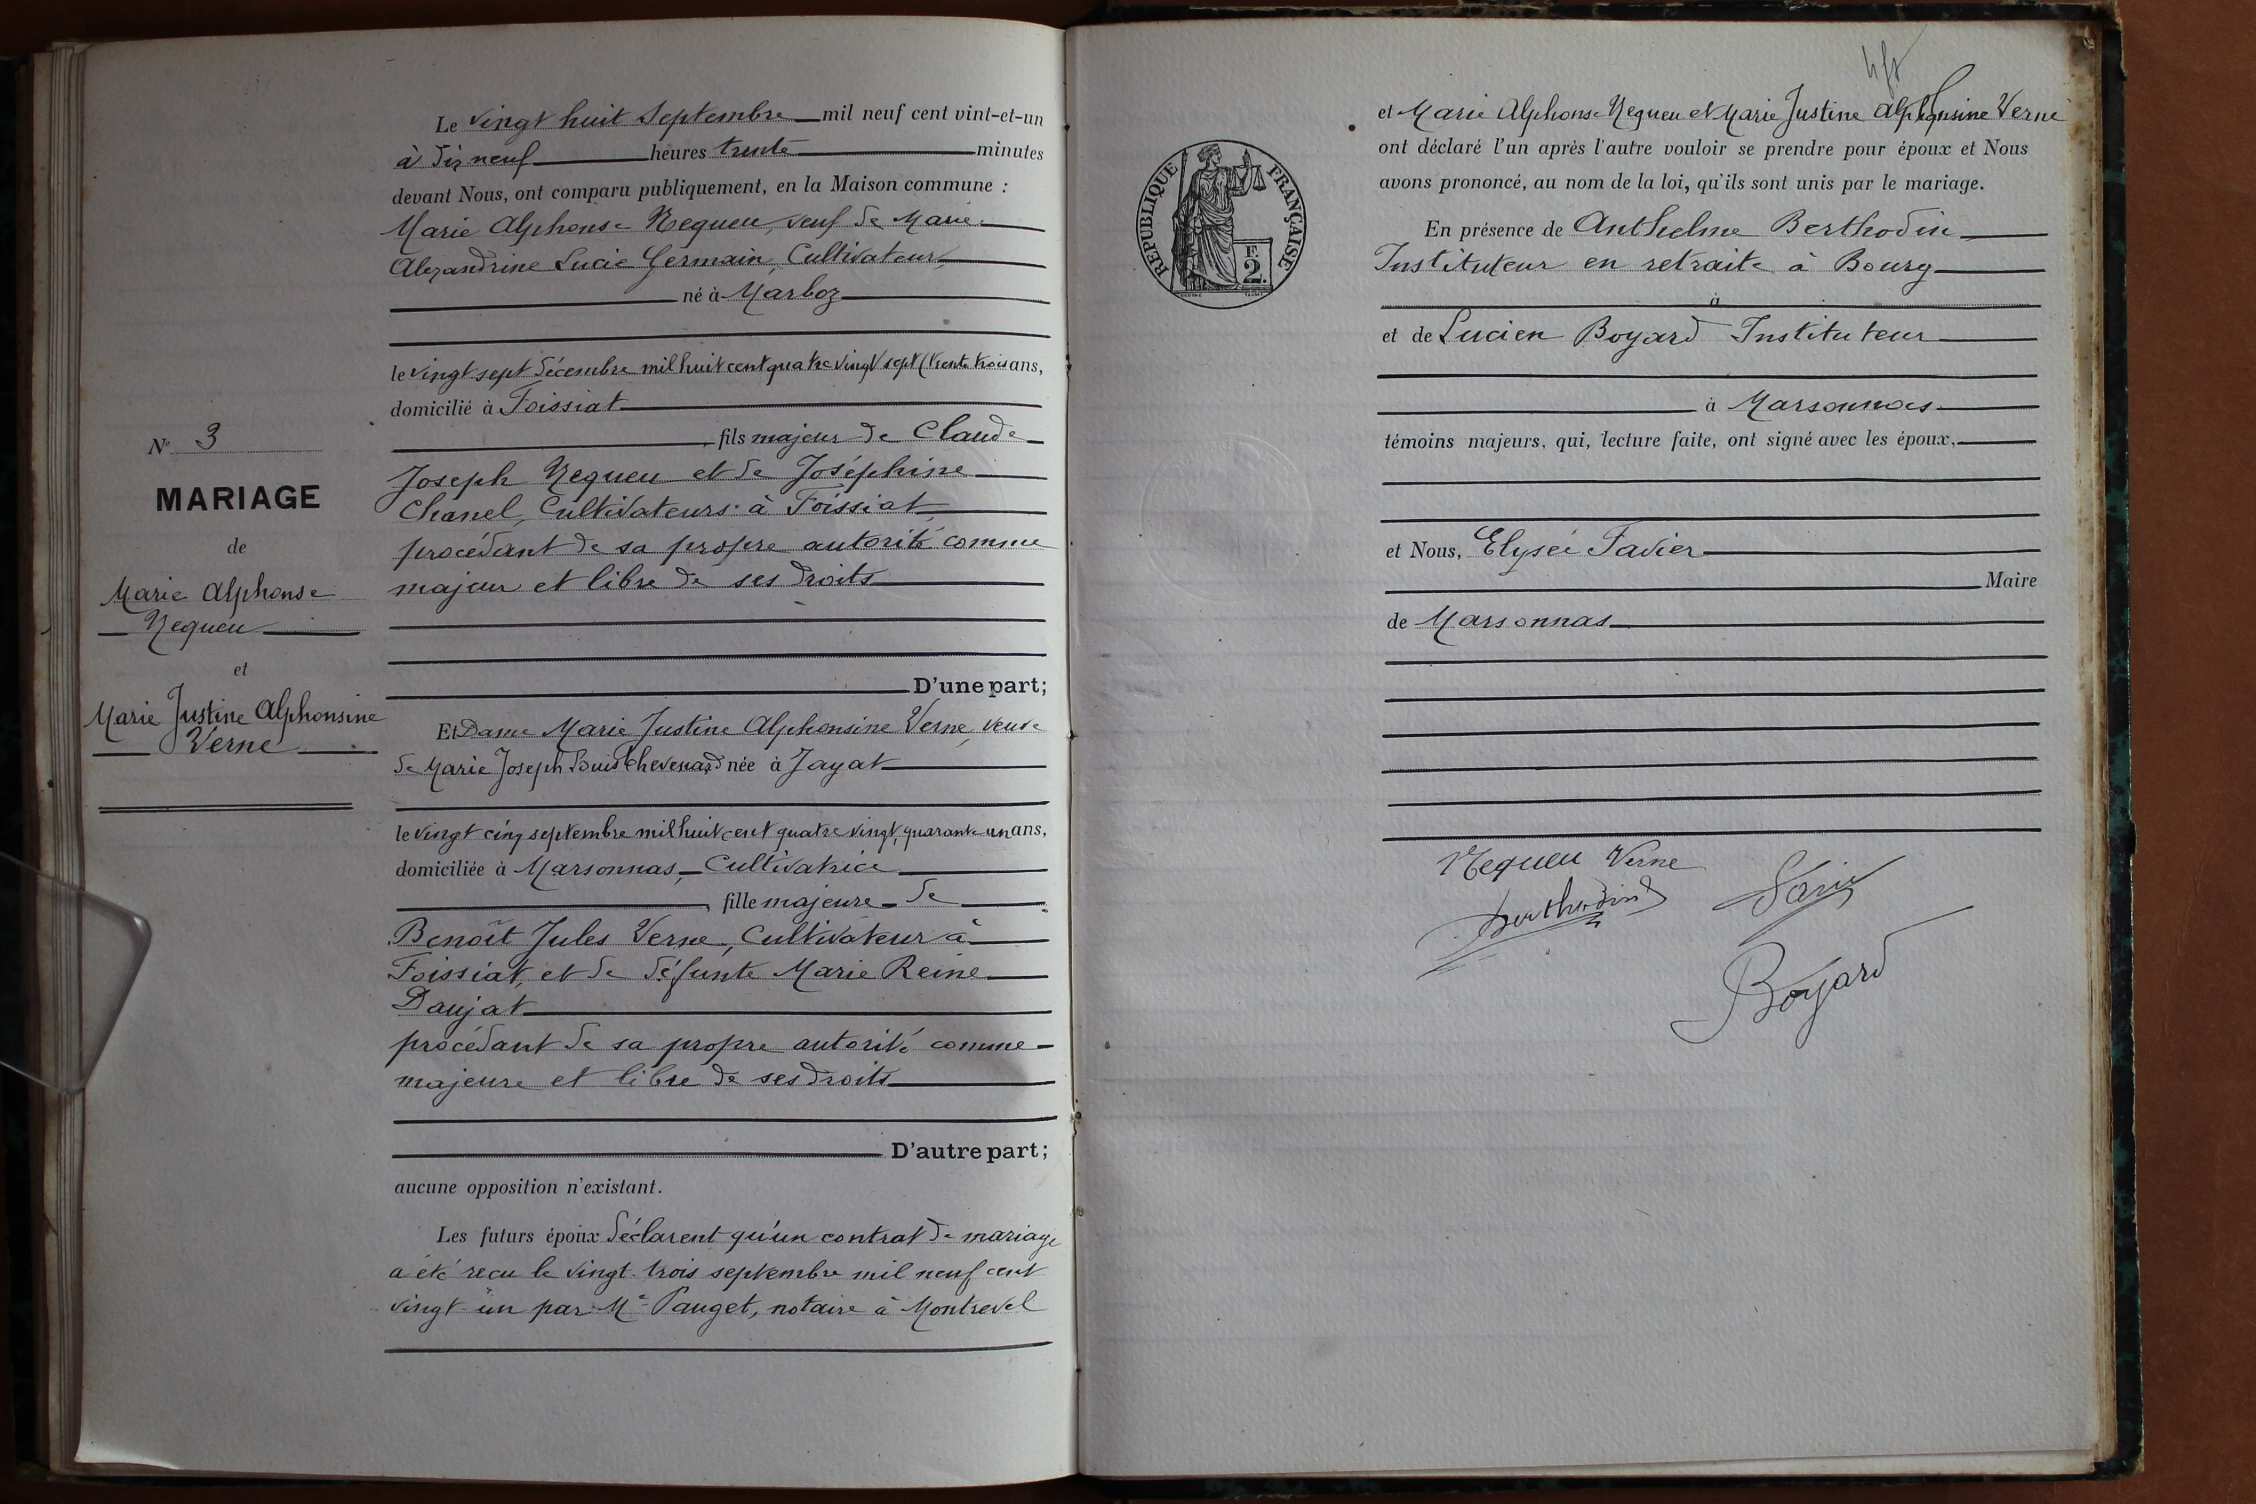 Le vingt huit Septembre mil neuf cent vint-et-un
à dix neuf heures trente minutes
devant Nous, ont comparu publiquement, en la Maison commune :
Marie Alphonse Nequeu, veuf de Marie
Alexandrine Lucie Germain, Cultivateur,
né à Marboz
le vingt sept décembre mil huit cent quatre vingt sept (trente trois ans,
domicilié à Foissiat
fils majeur de Claude
Joseph Nequeu et de Joséphine
Chanel, Cultivateurs à Foissiat,
procédant de sa propre autorité comme
majeur et libre de ses droits
D'une part;
Et Dame Marie Justine Alphonsine Verne, veuve
de Marie Joseph Louis Chevenard née à Jayat
le vingt cinq septembre mil huit cent quatre vingt, quarante un ans,
domiciliée à Marsonnas, Cultivatrice
fille majeure de
Benoît Jules Verne, Cultivateur à
Foissiat, et de défunte Marie Reine
Daujat
procédant de sa propre autorité comme
majeure et libre de ses droits
D'autre part;
aucune opposition n'existant.
Les futurs époux déclarent qu'un contrat de mariage
a été reçu le vingt trois septembre mil neuf cent
vingt un par Me Pauget, notaire à Montrevel
N° 3
MARIAGE
de
Marie Alphonse
Nequeu
et
Marie Justine Alphonsine
Verne
et Marie Alphonse Nequeu et Marie Justine Alphonsine Verne
ont déclaré l'un après l'autre vouloir se prendre pour époux et Nous
avons prononcé, au nom de la loi, qu'ils sont unis par le mariage.
RÉPUBLIQUE FRANÇAISE
F.
2.
En présence de Anthelme Berthodin
Instituteur en retraite à Bourg
à
et de Lucien Boyard Instituteur
à Marsonnas
témoins majeurs, qui, lecture faite, ont signé avec les époux,
et Nous, Elysée Favier
Maire
de Marsonnas
Nequeu Verne
Berthodin
Boyard